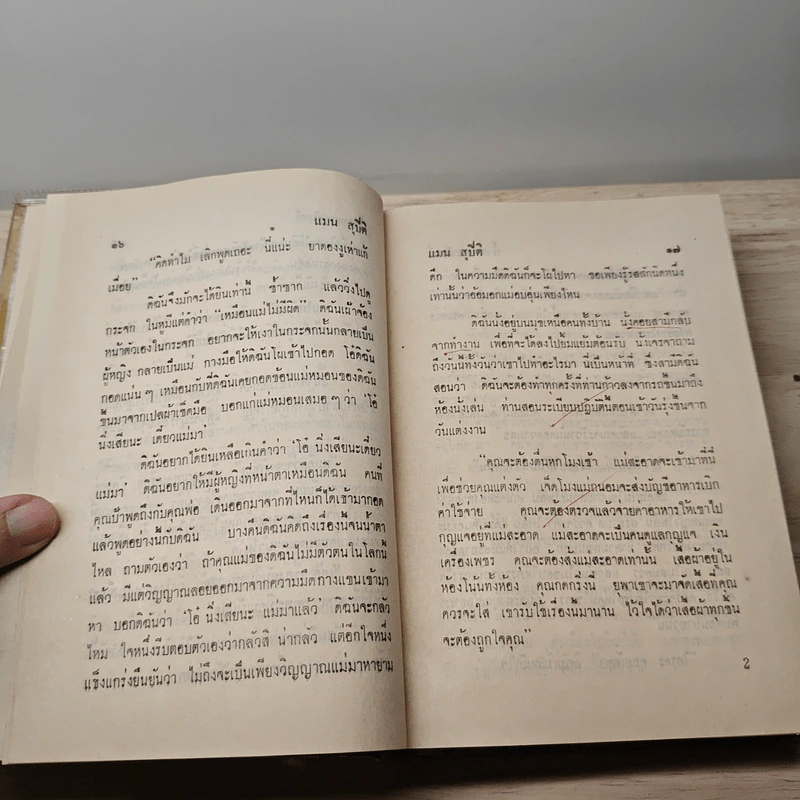 ๑๖
แมน สุปิติ
“คิดทำไม เลิกพูดเถอะ นี่แน่ะ ยาดองงูเห่าแก้
เมื่อย”
ดิฉันจึงมักจะได้ยินเท่านี้ ซ้ำซาก แล้ววิ่งไปดู
กระจก ในหูมีแต่คำว่า “เหมือนแม่ไม่มีผิด” ดิฉันเฝ้าจ้อง
หน้าตัวเองในกระจก อยากจะให้เงาในกระจกนั้นกลายเป็น
ผู้หญิง กลายเป็นแม่ กางมือให้ดิฉันโผเข้าไปกอด โอ๋ดิฉัน
กอดแน่น ๆ เหมือนกับที่ดิฉันเคยกอดซ้อนแม่หมอนของดิฉัน
ขึ้นมาจากเปลผ้าเช็ดมือ บอกแก่แม่หมอนเสมอ ๆ ว่า ‘โอ๋
นิ่งเสียนะ เดี๋ยวแม่มา’
ดิฉันอยากได้ยินเหลือเกินคำว่า ‘โอ๋ นิ่งเสียนะเดี๋ยว
แม่มา’ ดิฉันอยากให้มีผู้หญิงที่หน้าตาเหมือนดิฉัน คนที่
คุณป้าพูดถึงกับคุณพ่อ เดินออกมาจากที่ไหนก็ได้เข้ามากอด
แล้วพูดอย่างนี้กับดิฉัน บางคืนดิฉันคิดถึงเรื่องนี้จนน้ำตา
ไหล ถามตัวเองว่า ถ้าคุณแม่ของดิฉันไม่มีตัวตนในโลกนี้
แล้ว มีแต่วิญญาณลอยออกมาจากความมืดกางแขนเข้ามา
หา บอกดิฉันว่า ‘โอ๋ นิ่งเสียนะ แม่มาแล้ว’ ดิฉันจะกลัว
ไหม ใจหนึ่งรีบตอบตัวเองว่ากลัวสิ น่ากลัว แต่อีกใจหนึ่ง
แข็งแกร่งยืนยันว่า ไม่ถึงจะเป็นเพียงวิญญาณแม่มาหายาม
แมน สุปิติ
๑๗
ดึก ในความมืดดิฉันก็จะโผไปหา ขอเพียงรู้รสสักนิดหนึ่ง
เท่านั้นว่าอ้อมอกแม่อบอุ่นเพียงไหน
ดิฉันนั่งอยู่บนมุขเหนือคนทั้งบ้าน นั่งคอยสามีกลับ
จากทำงาน เพื่อที่จะได้ลงไปยิ้มแย้มต้อนรับ นั่งเจรจาถาม
ถึงวันนี้ทั้งวันว่าเขาไปทำอะไรมา นี่เป็นหน้าที่ ซึ่งสามีดิฉัน
สอนว่า ดิฉันจะต้องทำทุกครั้งที่ท่านก้าวลงจากรถขึ้นมาถึง
ห้องนั่งเล่น ท่านสอนระเบียบปฏิบัตินี้ตอนเช้าวันรุ่งขึ้นจาก
วันแต่งงาน
“คุณจะต้องตื่นหกโมงเช้า แม่สะอาดจะเข้ามาที่นี่
เพื่อช่วยคุณแต่งตัว เจ็ดโมงแม่ถนอมจะส่งบัญชีอาหารเบิก
ค่าใช้จ่าย คุณจะต้องตรวจแล้วจ่ายค่าอาหารให้เขาไป
กุญแจอยู่ที่แม่สะอาด แม่สะอาดจะเป็นคนดูแลกุญแจ เงิน
เครื่องเพชร คุณจะต้องสั่งแม่สะอาดเท่านั้น เสื้อผ้าอยู่ใน
ห้องโน้นทั้งห้อง คุณกดกริ่งนี้ ยุพาเขาจะมาจัดเสื้อที่คุณ
ควรจะใส่ เขารับใช้เรื่องนี้มานาน ไว้ใจได้ว่าเสื้อผ้าทุกชิ้น
จะต้องถูกใจคุณ”
2